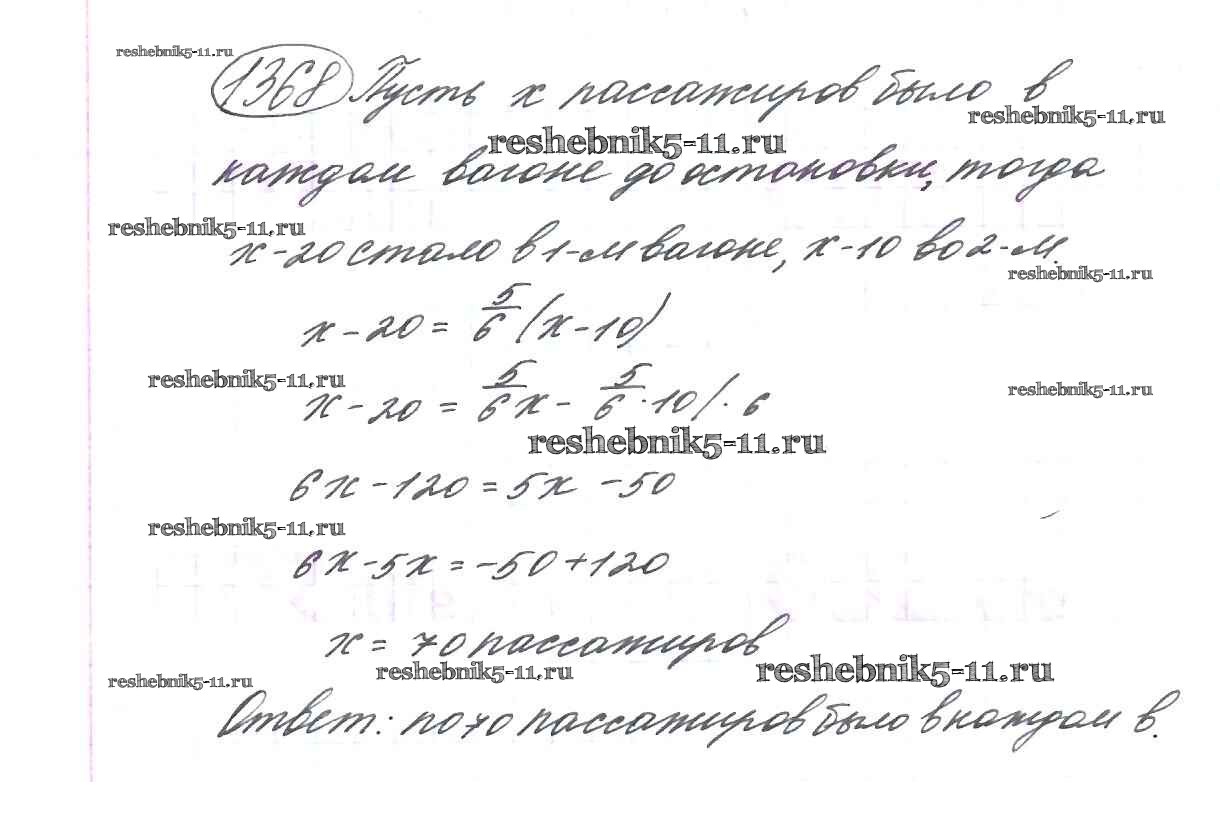 reshebnik5-11.ru
1368 Пусть x пассажиров было в
reshebnik5-11.ru
reshebnik5-11.ru
каждом вагоне до остановки, тогда
reshebnik5-11.ru
x-20 стало в 1-м вагоне, x-10 во 2-м.
reshebnik5-11.ru
x - 20 = 5/6 (x-10)
reshebnik5-11.ru
reshebnik5-11.ru
x - 20 = 5/6 x - 5/6 · 10 | · 6
reshebnik5-11.ru
6x - 120 = 5x - 50
reshebnik5-11.ru
6x - 5x = -50 + 120
x = 70 пассажиров
reshebnik5-11.ru
reshebnik5-11.ru
reshebnik5-11.ru
Ответ: по 70 пассажиров было в каждом в.